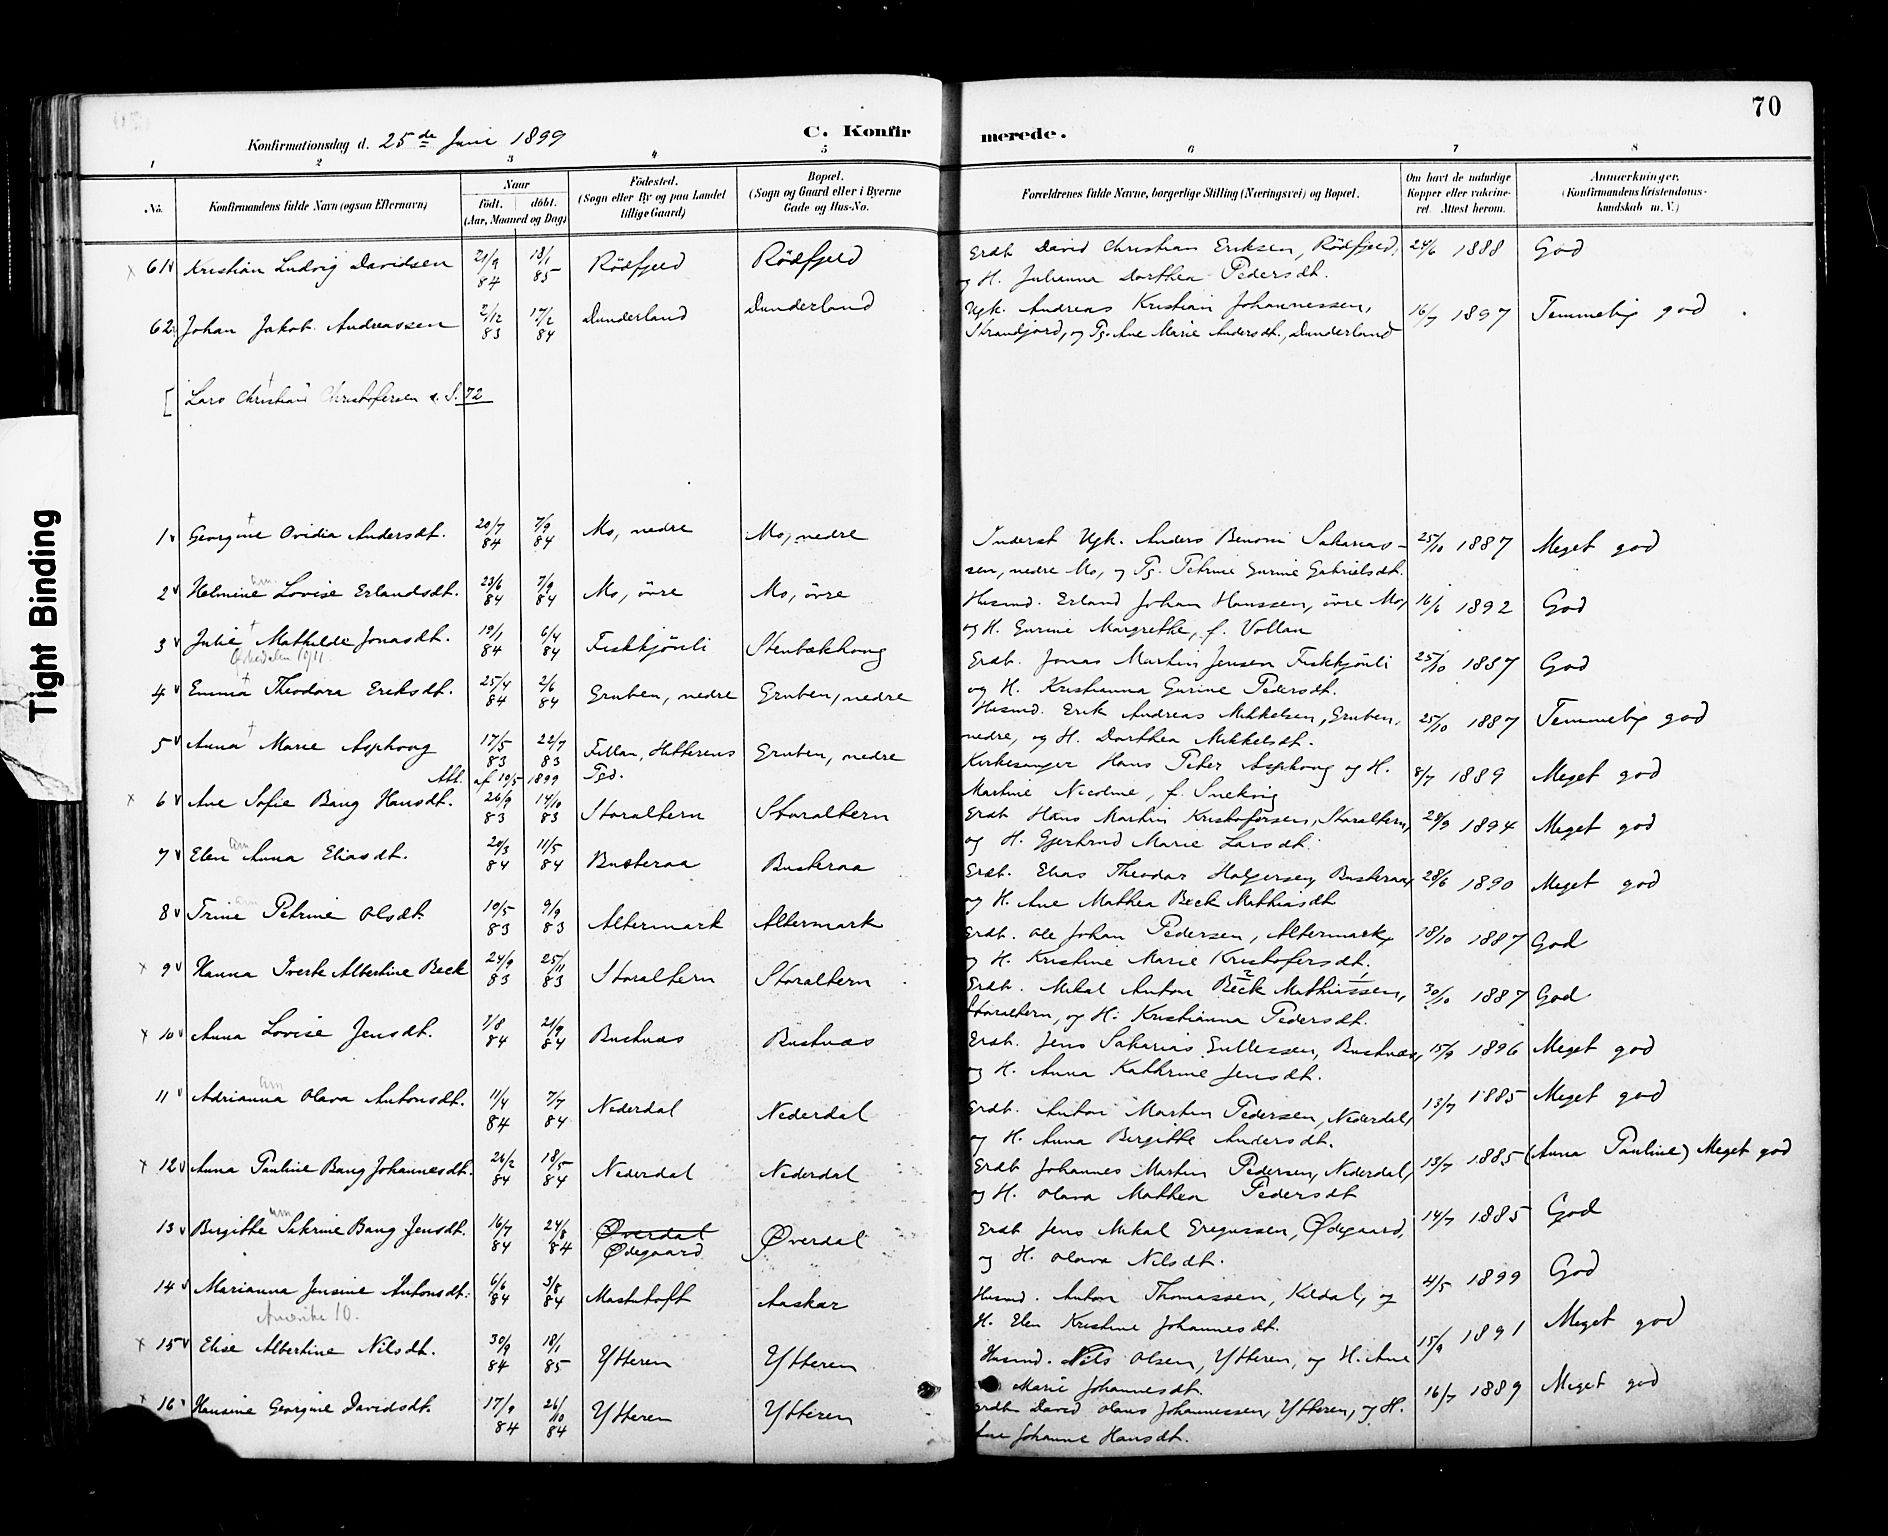 70
Konfirmationsdag d. 25de Juni 1899
C. Konfirmerede.
1 2 3 4 5 6 7 8
No.
Konfirmandens fulde Navn (ogsaa Efternavn)
Naar
födt. döbt.
(Aar, Maaned og Dag)
Födested.
(Sogn eller By og paa Landet
tillige Gaard)
Bopæl.
(Sogn og Gaard eller i Byerne
Gade og Hus-No.
Forældrenes fulde Navne, borgerlige Stilling (Næringsvei) og Bopæl.
Om havt de naturlige
Kopper eller vakcine-
ret. Attest herom.
Anmærkninger.
(Konfirmandens Kristendoms-
kundskab m. V.)
61 Kristian Ludvig Davidsen 21/9 84 18/1 85 Rödfjeld Rödfjeld Grdb. David Christian Eriksen, Rödfjeld, 24/6 1888 God
og H. Julianna Dorthea Pedersdt.
62 Johan Jakob Andreassen 2/12 83 17/2 84 Dunderland Dunderland Ugk. Andreas Kristian Johannessen, 16/7 1897 Temmelig god
Strandjord, og Pg. Ane Marie Andersdt., Dunderland
[ Lars Christian Christofersen s. S. 72
1 Georgine Ovidia Andersdt. 20/7 84 7/9 84 Mo, nedre Mo, nedre Inderst Ugk. Anders Benoni Sakarias- 25/10 1887 Meget god
sen, nedre Mo, og Pg. Petrine Gurine Gabrielsdt.
2 Helmine Lovise Erlandsdt. 23/6 84 7/9 84 Mo, övre Mo, övre Husmd. Erland Johan Hanssen, övre Mo, 16/6 1892 God
og H. Gurine Margrethe, f. Vollan
3 Julie Mathilde Jonasdt. 19/1 84 6/4 84 Fiskkjönli Stenbækhaug Grdb. Jonas Martin Jensen Fiskkjönli 25/10 1887 God
og H. Kristianna Gurine Pedersdt.
4 Emma Theodora Eriksdt. 25/4 84 2/6 84 Gruben, nedre Gruben, nedre Husmd. Erik Andreas Mikkelsen, Gruben, 25/10 1887 Temmelig god
nedre, og H. Dorthea Mikkelsdt.
5 Anna Marie Asphaug 17/5 83 22/7 83 Fillan, Hitterens Gruben, nedre Kirkesanger Hans Peter Asphaug og H. 8/7 1889 Meget god
Att. af 19/5 1899 Pgd.
Martine Nicoline, f. Snekvig
6 Ane Sofie Bang Hansdt. 26/9 83 14/10 83 Storaltern Storaltern Grdb. Hans Martin Kristofersen, Storaltern, 28/9 1894 Meget god
og H. Gjertrud Marie Larsdt.
7 Elen Anna Eliasdt. 20/3 84 11/5 84 Busteraa Busteraa Grdb. Elias Theodor Holgersen, Busteraa, 28/6 1890 Meget god
og H. Ane Mathea Beck Mathiasdt
8 Trine Petrine Olsdt. 10/5 83 9/9 83 Altermark Altermark Grdb. Ole Johan Pedersen, Altermark, 18/10 1887 God
og H. Kristine Marie Kristofersdt.
9 Hanna Iverte Albertine Beck 24/9 83 25/11 83 Storaltern Storaltern Grdb. Mikal Anton Beck Mathiassen, 30/10 1887 God
Storaltern, og H. Kristianna Pedersdt.
10 Anna Lovise Jensdt. 7/8 84 21/9 84 Bustnæs Bustnæs Grdb. Jens Sakarias Gullessen, Bustnæs, 15/9 1896 Meget god
og H. Anna Kathrine Jensdt.
11 Adrianna Olava Antonsdt. 11/4 84 7/7 84 Nederdal Nederdal Grdb. Anton Martin Pedersen, Nederdal, 13/7 1885 Meget god
og H. Anna Birgitte Andersdt.
12 Anna Pauline Bang Johannesdt. 26/2 84 18/5 84 Nederdal Nederdal Grdb Johannes Martin Pedersen, Nederdal, 13/7 1885 (Anna Pauline) Meget god
og H. Olava Mathea Pedersdt
13 Birgitte Sakrine Bang Jensdt. 16/7 84 24/8 84 Øverdal Øverdal Grdb Jens Mikal Gregussen, Ødegaard, 14/7 1885 God
Ødegaard
og H. Olava Nilsdt.
14 Marianna Jensine Antonsdt. 6/6 84 3/8 84 Mastutoft Aaskar Husmd. Anton Thomassen, Kildal, og 4/5 1899 God
Amerika 10.
H. Elen Kristine Johannesdt.
15 Elise Albertine Nilsdt. 30/9 84 18/1 85 Ytteren Ytteren Husmd. Nils Olsen, Ytteren, og H. Ane 15/9 1891 Meget god
Marie Johannesdt.
16 Hansine Georgine Davidsdt. 17/9 84 26/10 84 Ytteren Ytteren Grdb David Olaus Johannessen, Ytteren, og H. 16/7 1889 Meget god
Ane Johanne Hansdt.
Tight Binding